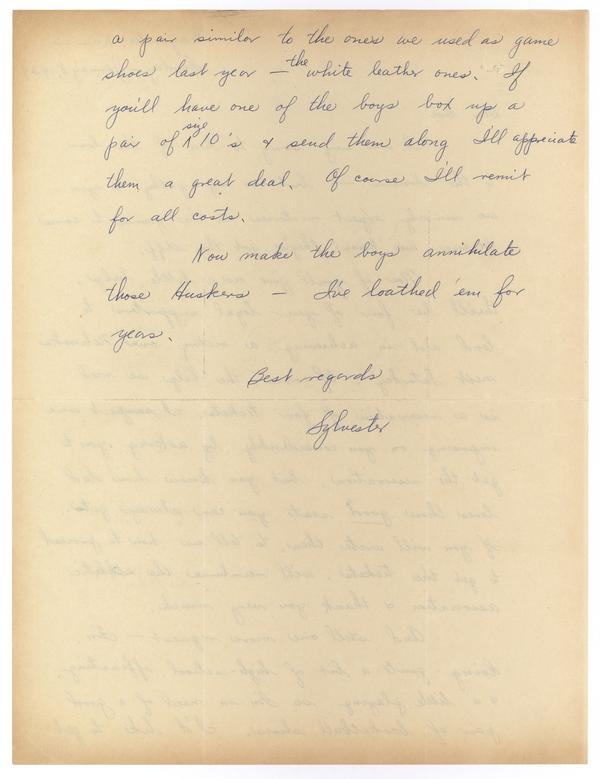 a pair similar to the ones we used as game
shoes last year — the white leather ones. If
you'll have one of the boys box up a
pair of size 10's & send them along I'll appreciate
them a great deal. Of course I'll remit
for all costs.
Now make the boys annihilate
those Huskers — I've loathed 'em for
years.
Best regards
Sylvester